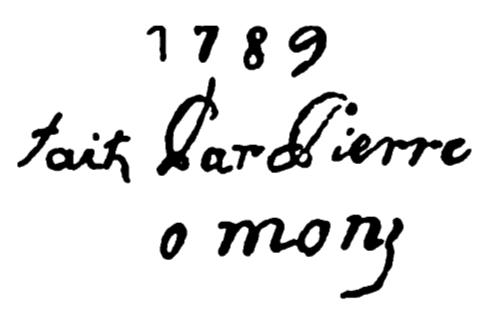 1789
fait Par Pierre
o mong